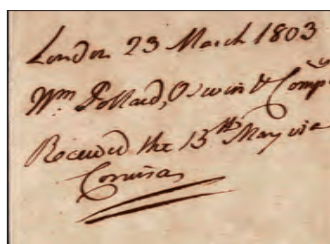 London 23 March 1803
Wm Pollard, Oswin & Compy
Received the 13th May via
Corunna